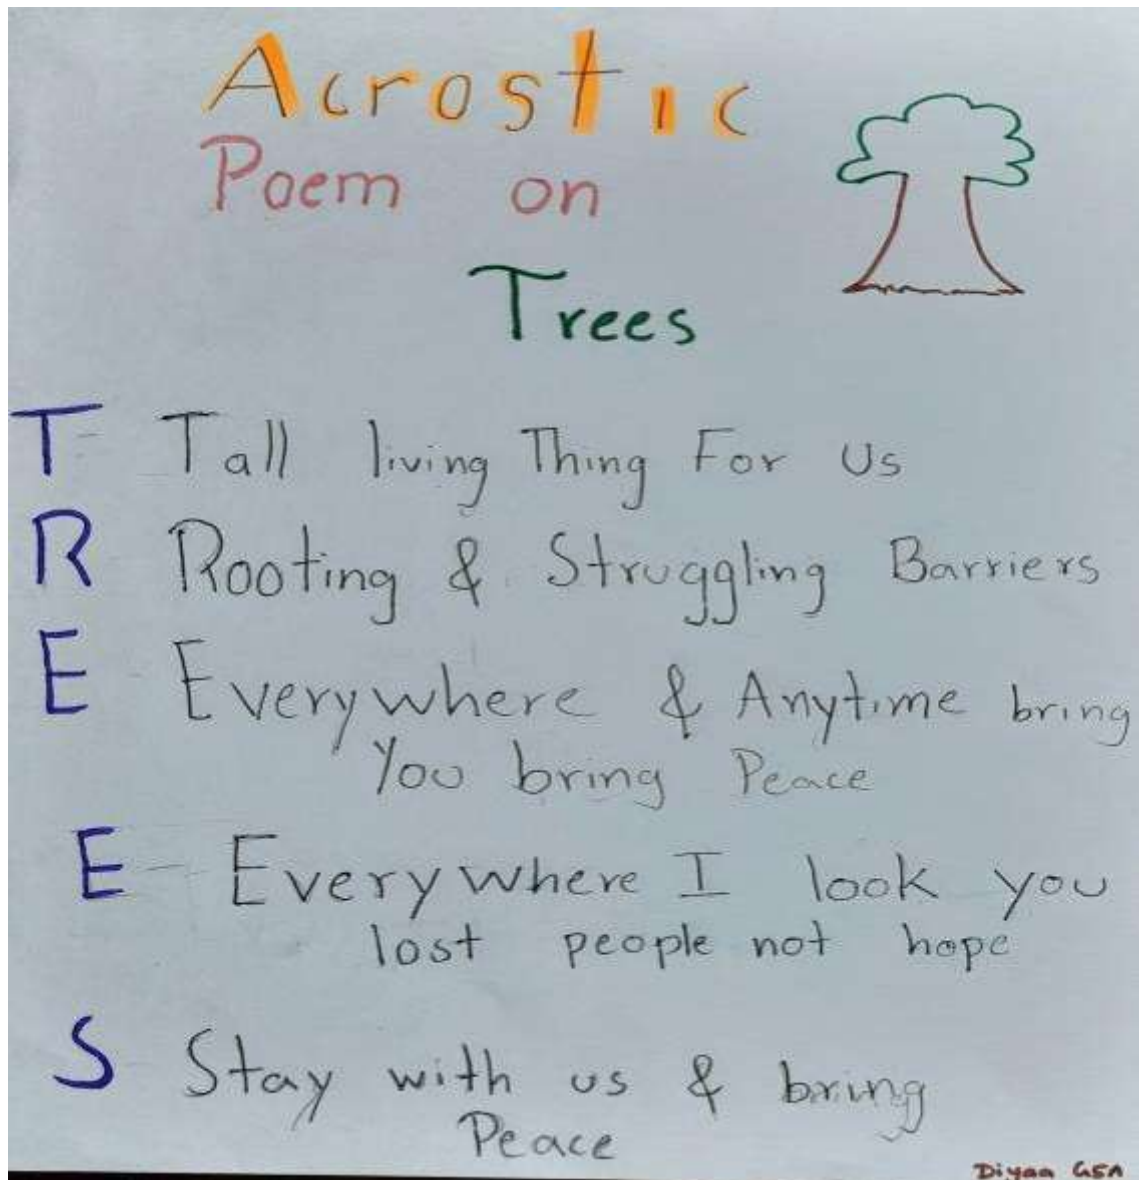 Acrostic
Poem on
Trees
T Tall living Thing For Us
R Rooting & Struggling Barriers
E Everywhere & Anytime bring
You bring Peace
E Everywhere I look you
lost people not hope
S Stay with us & bring
Peace
Diyaa